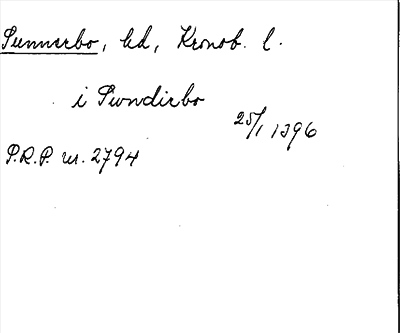 Sunnerbo, hd, Kronob. l.
i Swndirbo
25/1 1396
P.R.P. nr. 2794